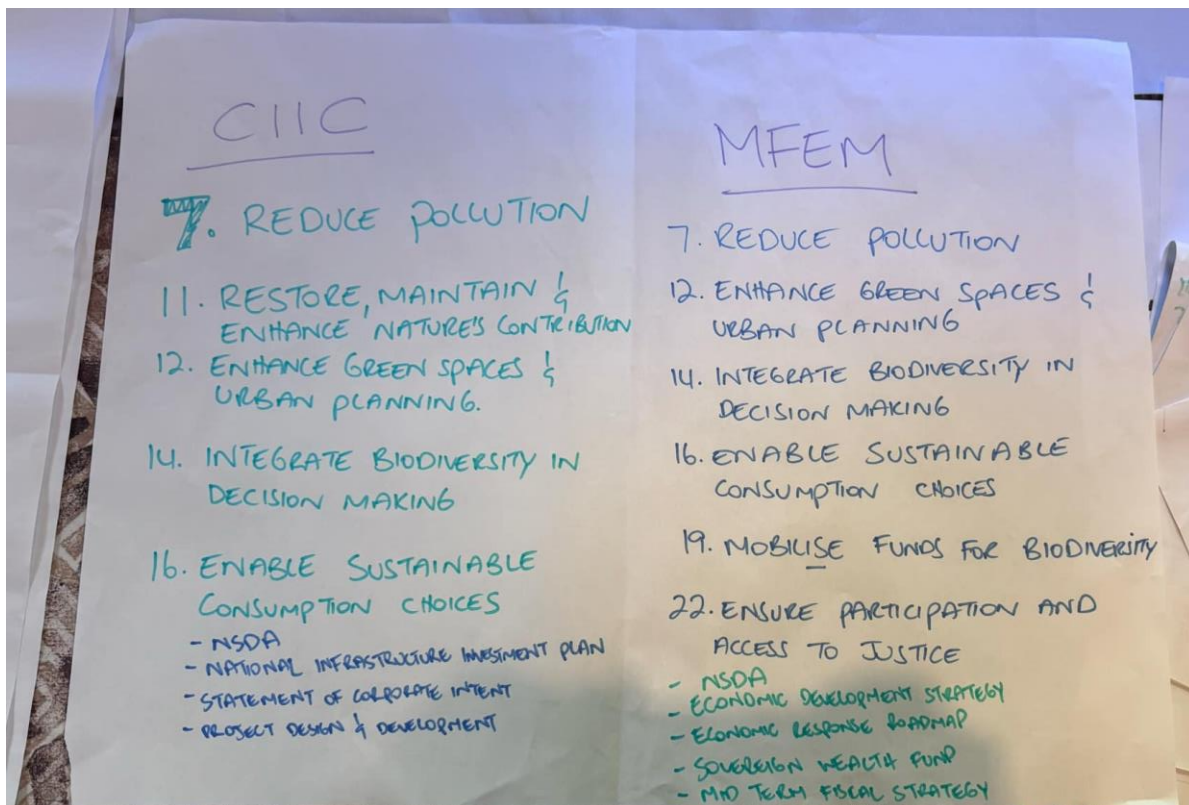 CIIC
7. REDUCE POLLUTION
11. RESTORE, MAINTAIN &
ENHANCE NATURE'S CONTRIBUTION
12. ENHANCE GREEN SPACES &
URBAN PLANNING.
14. INTEGRATE BIODIVERSITY IN
DECISION MAKING
16. ENABLE SUSTAINABLE
CONSUMPTION CHOICES
- NSDA
- NATIONAL INFRASTRUCTURE INVESTMENT PLAN
- STATEMENT OF CORPORATE INTENT
- PROJECT DESIGN & DEVELOPMENT
MFEM
7. REDUCE POLLUTION
12. ENHANCE GREEN SPACES &
URBAN PLANNING
14. INTEGRATE BIODIVERSITY IN
DECISION MAKING
16. ENABLE SUSTAINABLE
CONSUMPTION CHOICES
19. MOBILISE FUNDS FOR BIODIVERSITY
22. ENSURE PARTICIPATION AND
ACCESS TO JUSTICE
- NSDA
- ECONOMIC DEVELOPMENT STRATEGY
- ECONOMIC RESPONSE ROADMAP
- SOVEREIGN WEALTH FUND
- MID TERM FISCAL STRATEGY